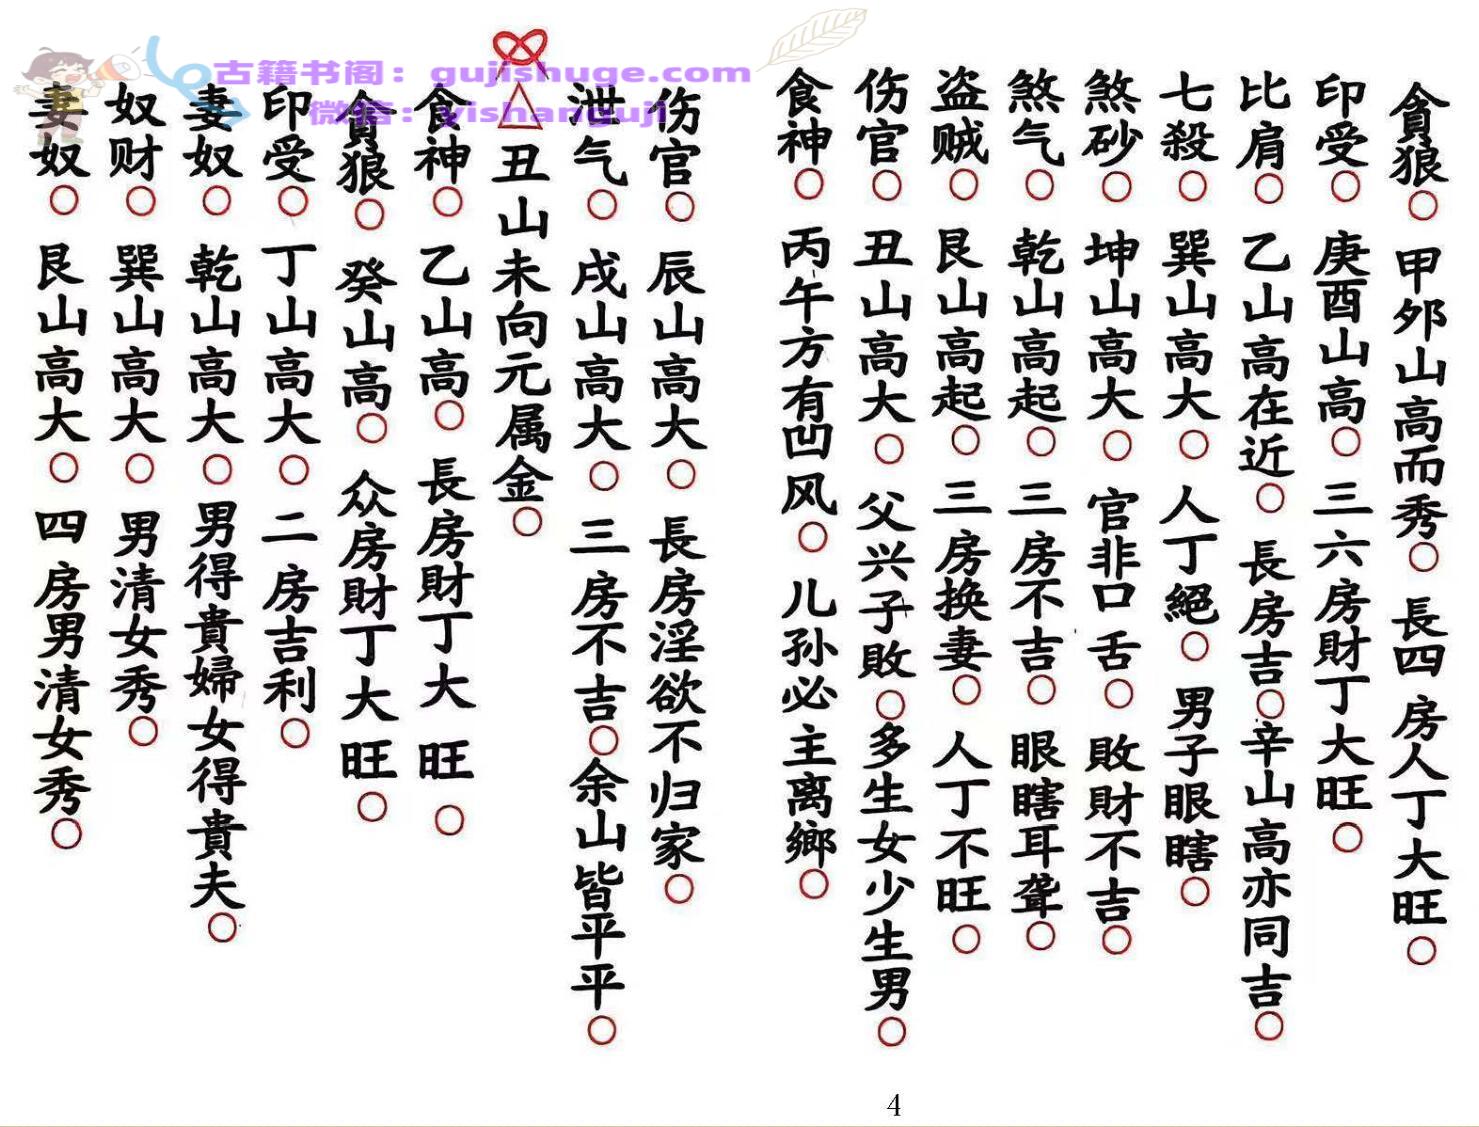 古籍书阁：gujishuge.com
微信：yishanguji
貪狼○甲夘山高而秀○長四房人丁大旺○
印受○庚酉山高○三六房財丁大旺○
比肩○乙山高在近○長房吉○辛山高亦同吉○
七殺○巽山高大○人丁絕○男子眼瞎○
煞砂○坤山高大○官非口舌○敗財不吉○
煞气○乾山高起○三房不吉○眼瞎耳聾○
盗贼○艮山高起○三房换妻○人丁不旺○
伤官○丑山高大○父兴子敗○多生女少生男○
食神○丙午方有凹风○儿孙必主离鄉○
伤官○辰山高大○長房淫欲不归家○
泄气○戌山高大○三房不吉○余山皆平平○
△丑山未向元属金○
食神○乙山高○長房財丁大旺○
貪狼○癸山高○众房財丁大旺○
印受○丁山高大○二房吉利○
妻奴○乾山高大○男得貴婦女得貴夫○
奴财○巽山高大○男清女秀○
妻奴○艮山高大○四房男清女秀○
4